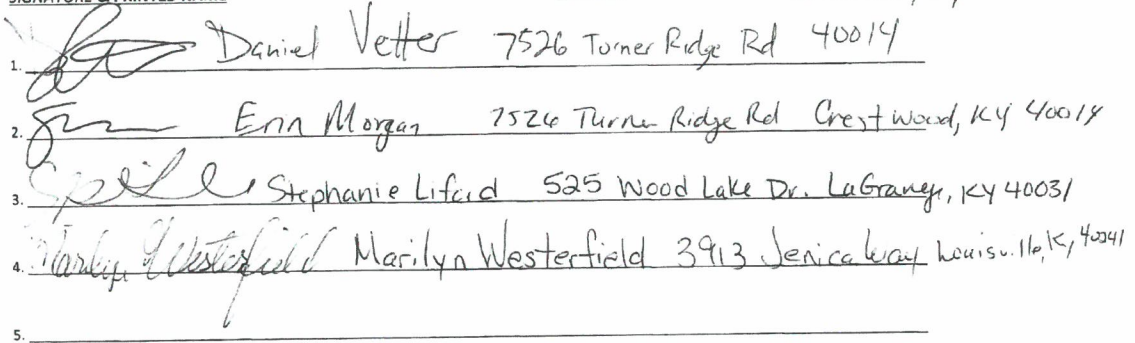 SIGNATURE & PRINTED NAME
1. Daniel Vetter 7526 Turner Ridge Rd 40014
2. Erin Morgan 7526 Turner Ridge Rd Crestwood, KY 40014
3. Stephanie 525 Wood Lake Dr. LaGrange, KY 40031
4. Marilyn Westerfield Marilyn Westerfield 3913 Jenica Way Louisville, Ky 40241
5.